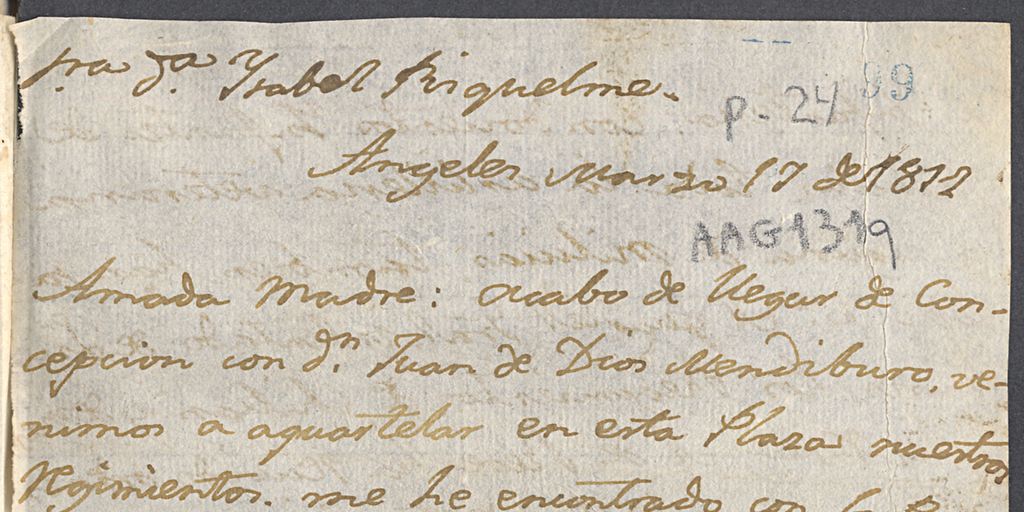 Sra. Da. Ysabel Riquelme.
p-24 99
Angeles Marzo 17 de 1812
AAG1319
Amada Madre: acabo de llegar de Con-
cepcion con dn. Juan de Dios Mendiburo, ve-
nimos a aquartelar en esta Plaza nuestros
Rejimientos. me he encontrado con